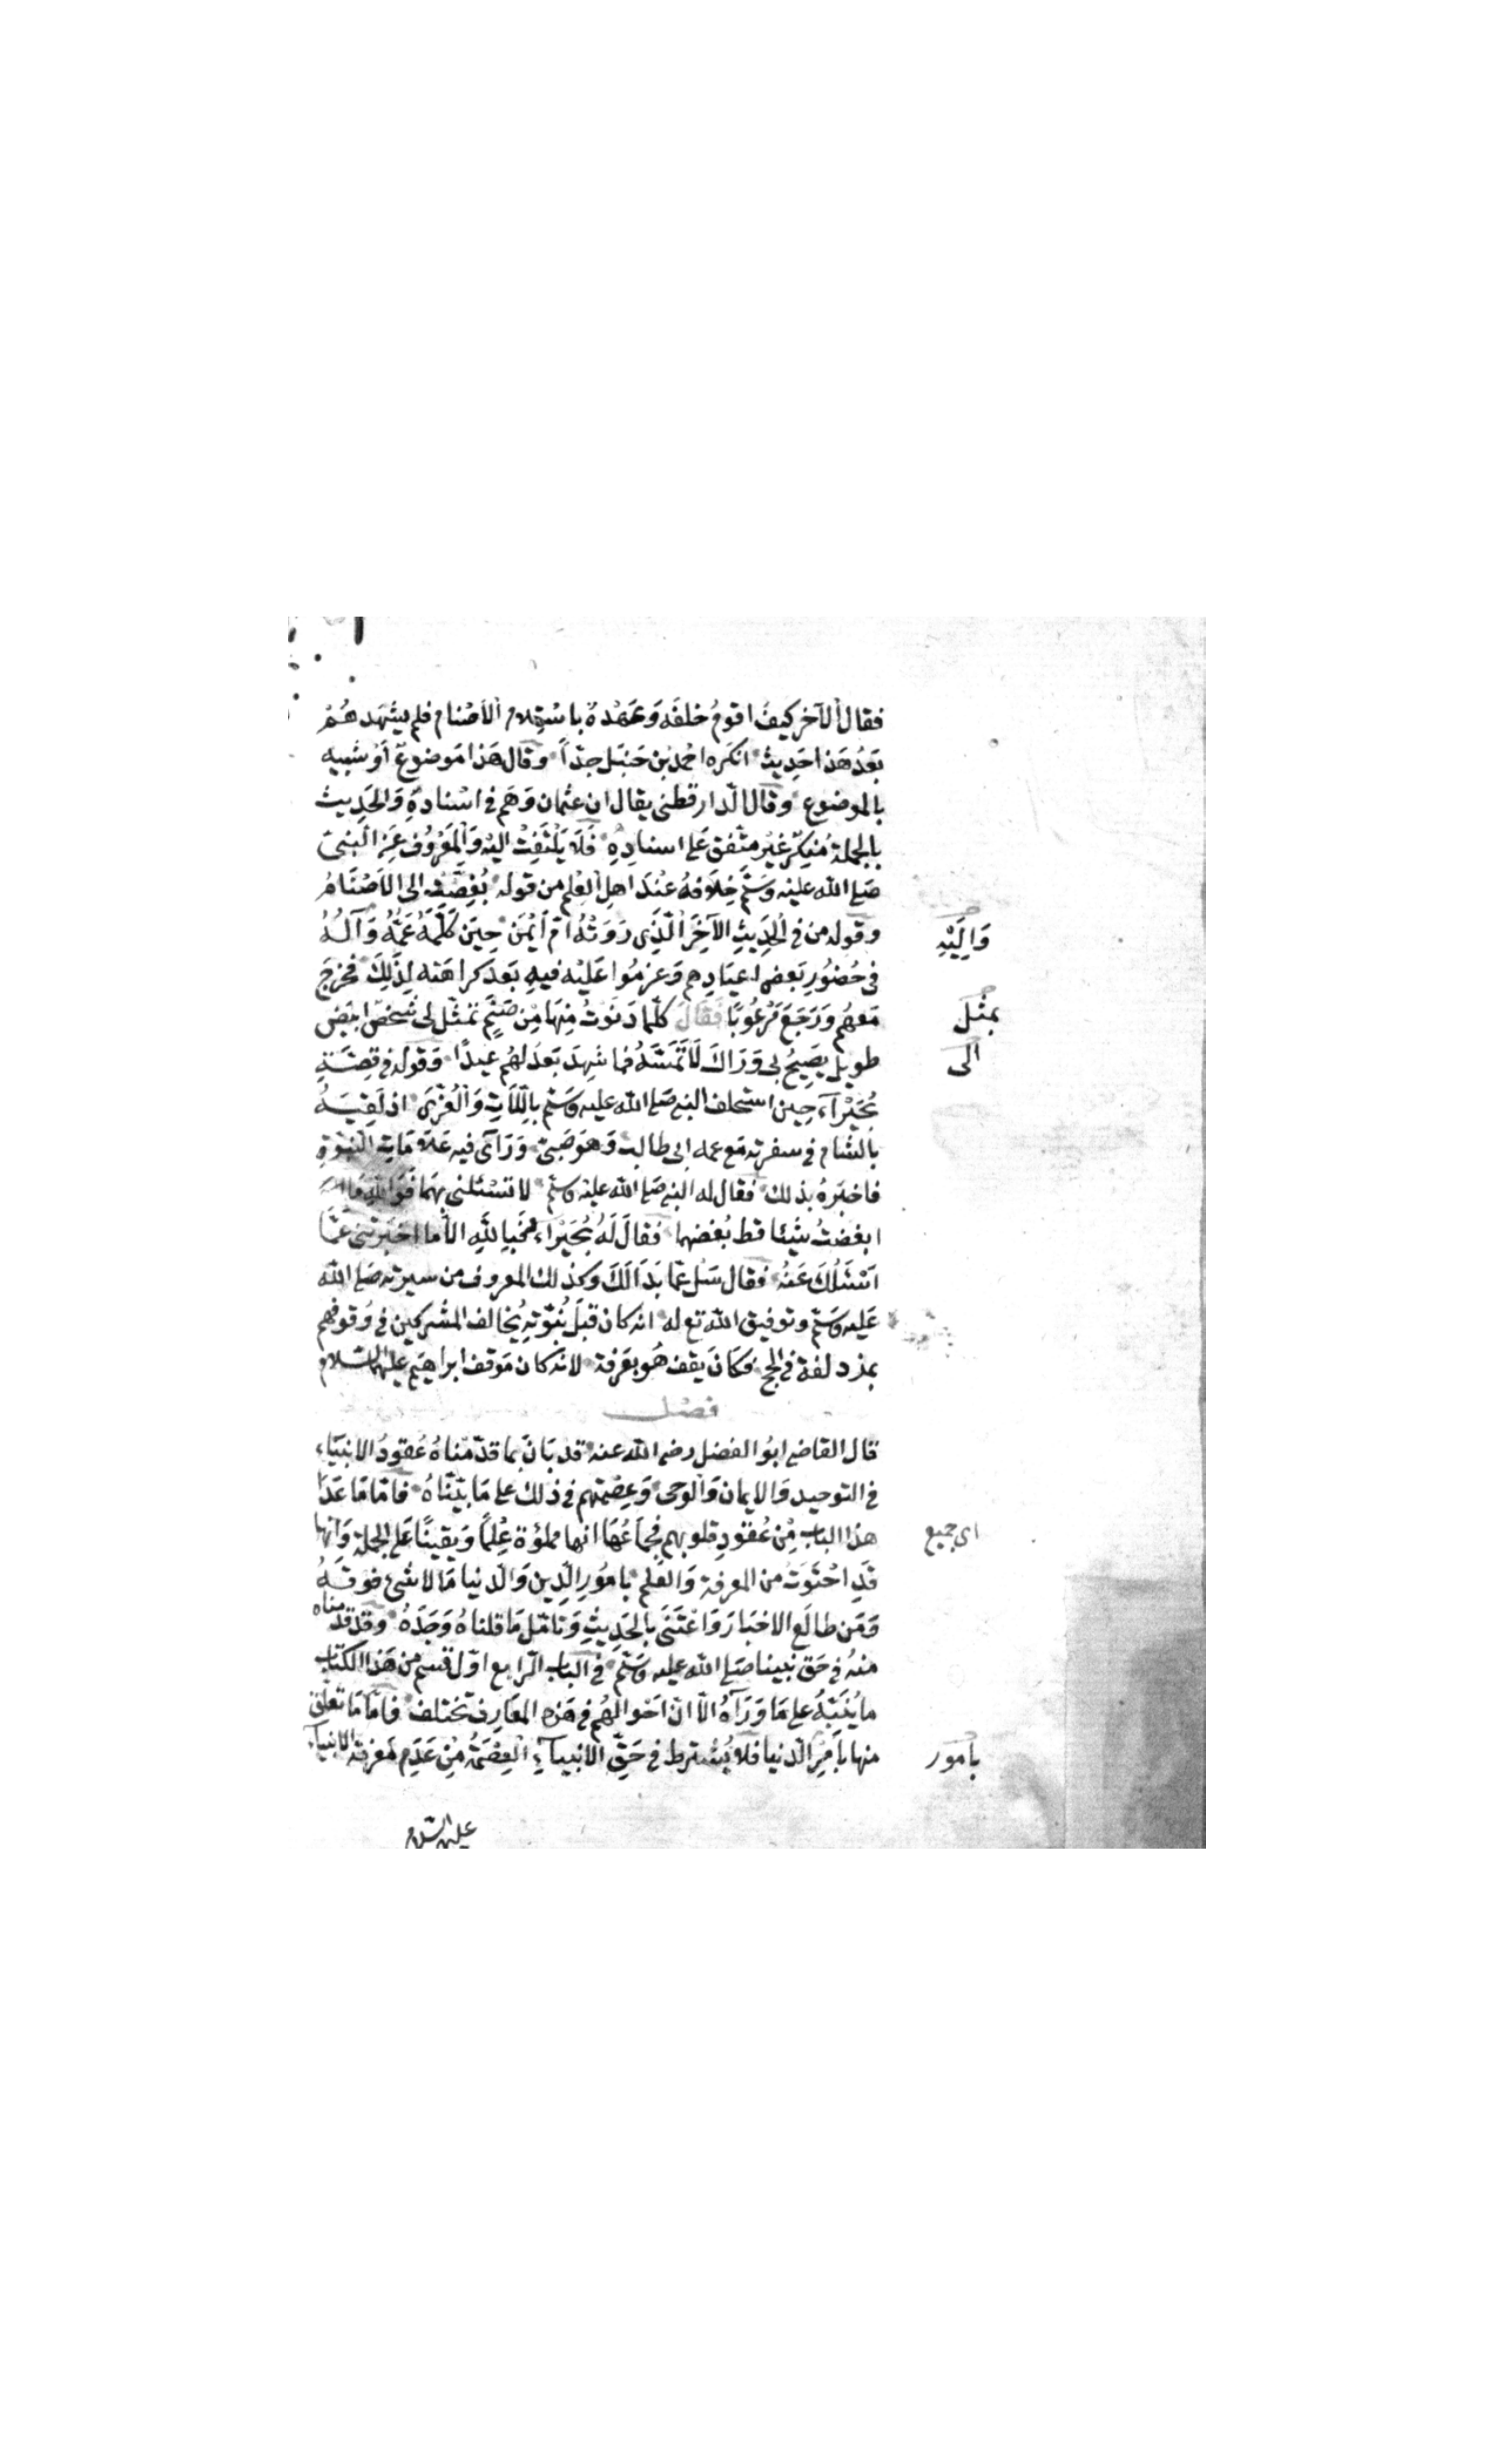 فقال الآخر كيف اقوم خلفه وعهده باستلام الأصنام فلم يشهدهم
بعد هذا حديث انكره احمد بن حنبل جدّاً وقال هذا موضوع أو شبيه
بالموضوع وقال الدارقطني يقال ان عثمان وهم في اسناده والحديث
بالجملة منكر غير متفق على اسناده فلا يلتفت اليه والمعروف عن النبيّ
صلى الله عليه وسلم خلافه عند اهل العلم من قوله بُغِّضت الى الاصنام
وقوله من في الحديث الآخر الذي روته ام أيمن حين كلّمه عمّه وآله
واليه
في حضور بعض اعيادهم وعزموا عليه فيه بعد كراهته لذلك فخرج
معهم ورجع مرعوبًا فقال كلّما دنوت منها من صنم تمثّل لى شخص ابيض
بمثل
طويل يصيح بى وراك لا تمسّه فما شهد بعد لهم عيدًا وقوله في قصّة
الى
بُحَيْرآء حين استحلف النبي صلى الله عليه وسلم باللات والعزى اذ لقيه
بالشام في سفرته مع عمه ابى طالب وهو صبىّ ورآى فيه علامات النبوة
فاخبره بذلك فقال له النبي صلى الله عليه وسلم لا تسئلنى بهما فوالله ما
ابغضت شيئا قط بغضهما فقال له بُحَيْراء فبالله الّا ما اخبرتنى عمّا
اسْئَلُكَ عنه فقال سل عمّا بدا لك وكذلك المعروف من سيرته صلى الله
عليه وسلم وتوفيق الله تع له انه كان قبل نبوّته يخالف المشركين في وقوفهم
بمزدلفة في الحج فكان يقف هو بعرفة لانه كان موقف ابراهيم عليه السلام
فصل
قال القاضى ابو الفضل رضى الله عنه قد بان بما قدّمناه عقود الانبياء
في التوحيد والايمان والوحى وعصمتهم في ذلك على ما بيّنّاه فامّا ما عدا
هذا الباب من عقود قلوبهم فجماعها انها مملؤة علمًا ويقينًا على الجملة وانها
اى جميع
قد احتوت من المعرفة والعلم بامور الدين والدنيا ما لا شئ فوقه
ومن طالع الاخبار واعتنى بالحديث وتامّل ما قلناه وجده وقد قدمناه
منه في حق نبينا صلى الله عليه وسلم في الباب الرابع اوّل قسم من هذا الكتاب
ما ينبّه على ما ورآه الّا انّ احوالهم في هذه المعارف تختلف فامّا ما تعلق
منها بأمر الدنيا فلا يشترط في حقّ الانبيآء العصمة من عدم معرفة الانبيآء
بامور
عليهم السلام